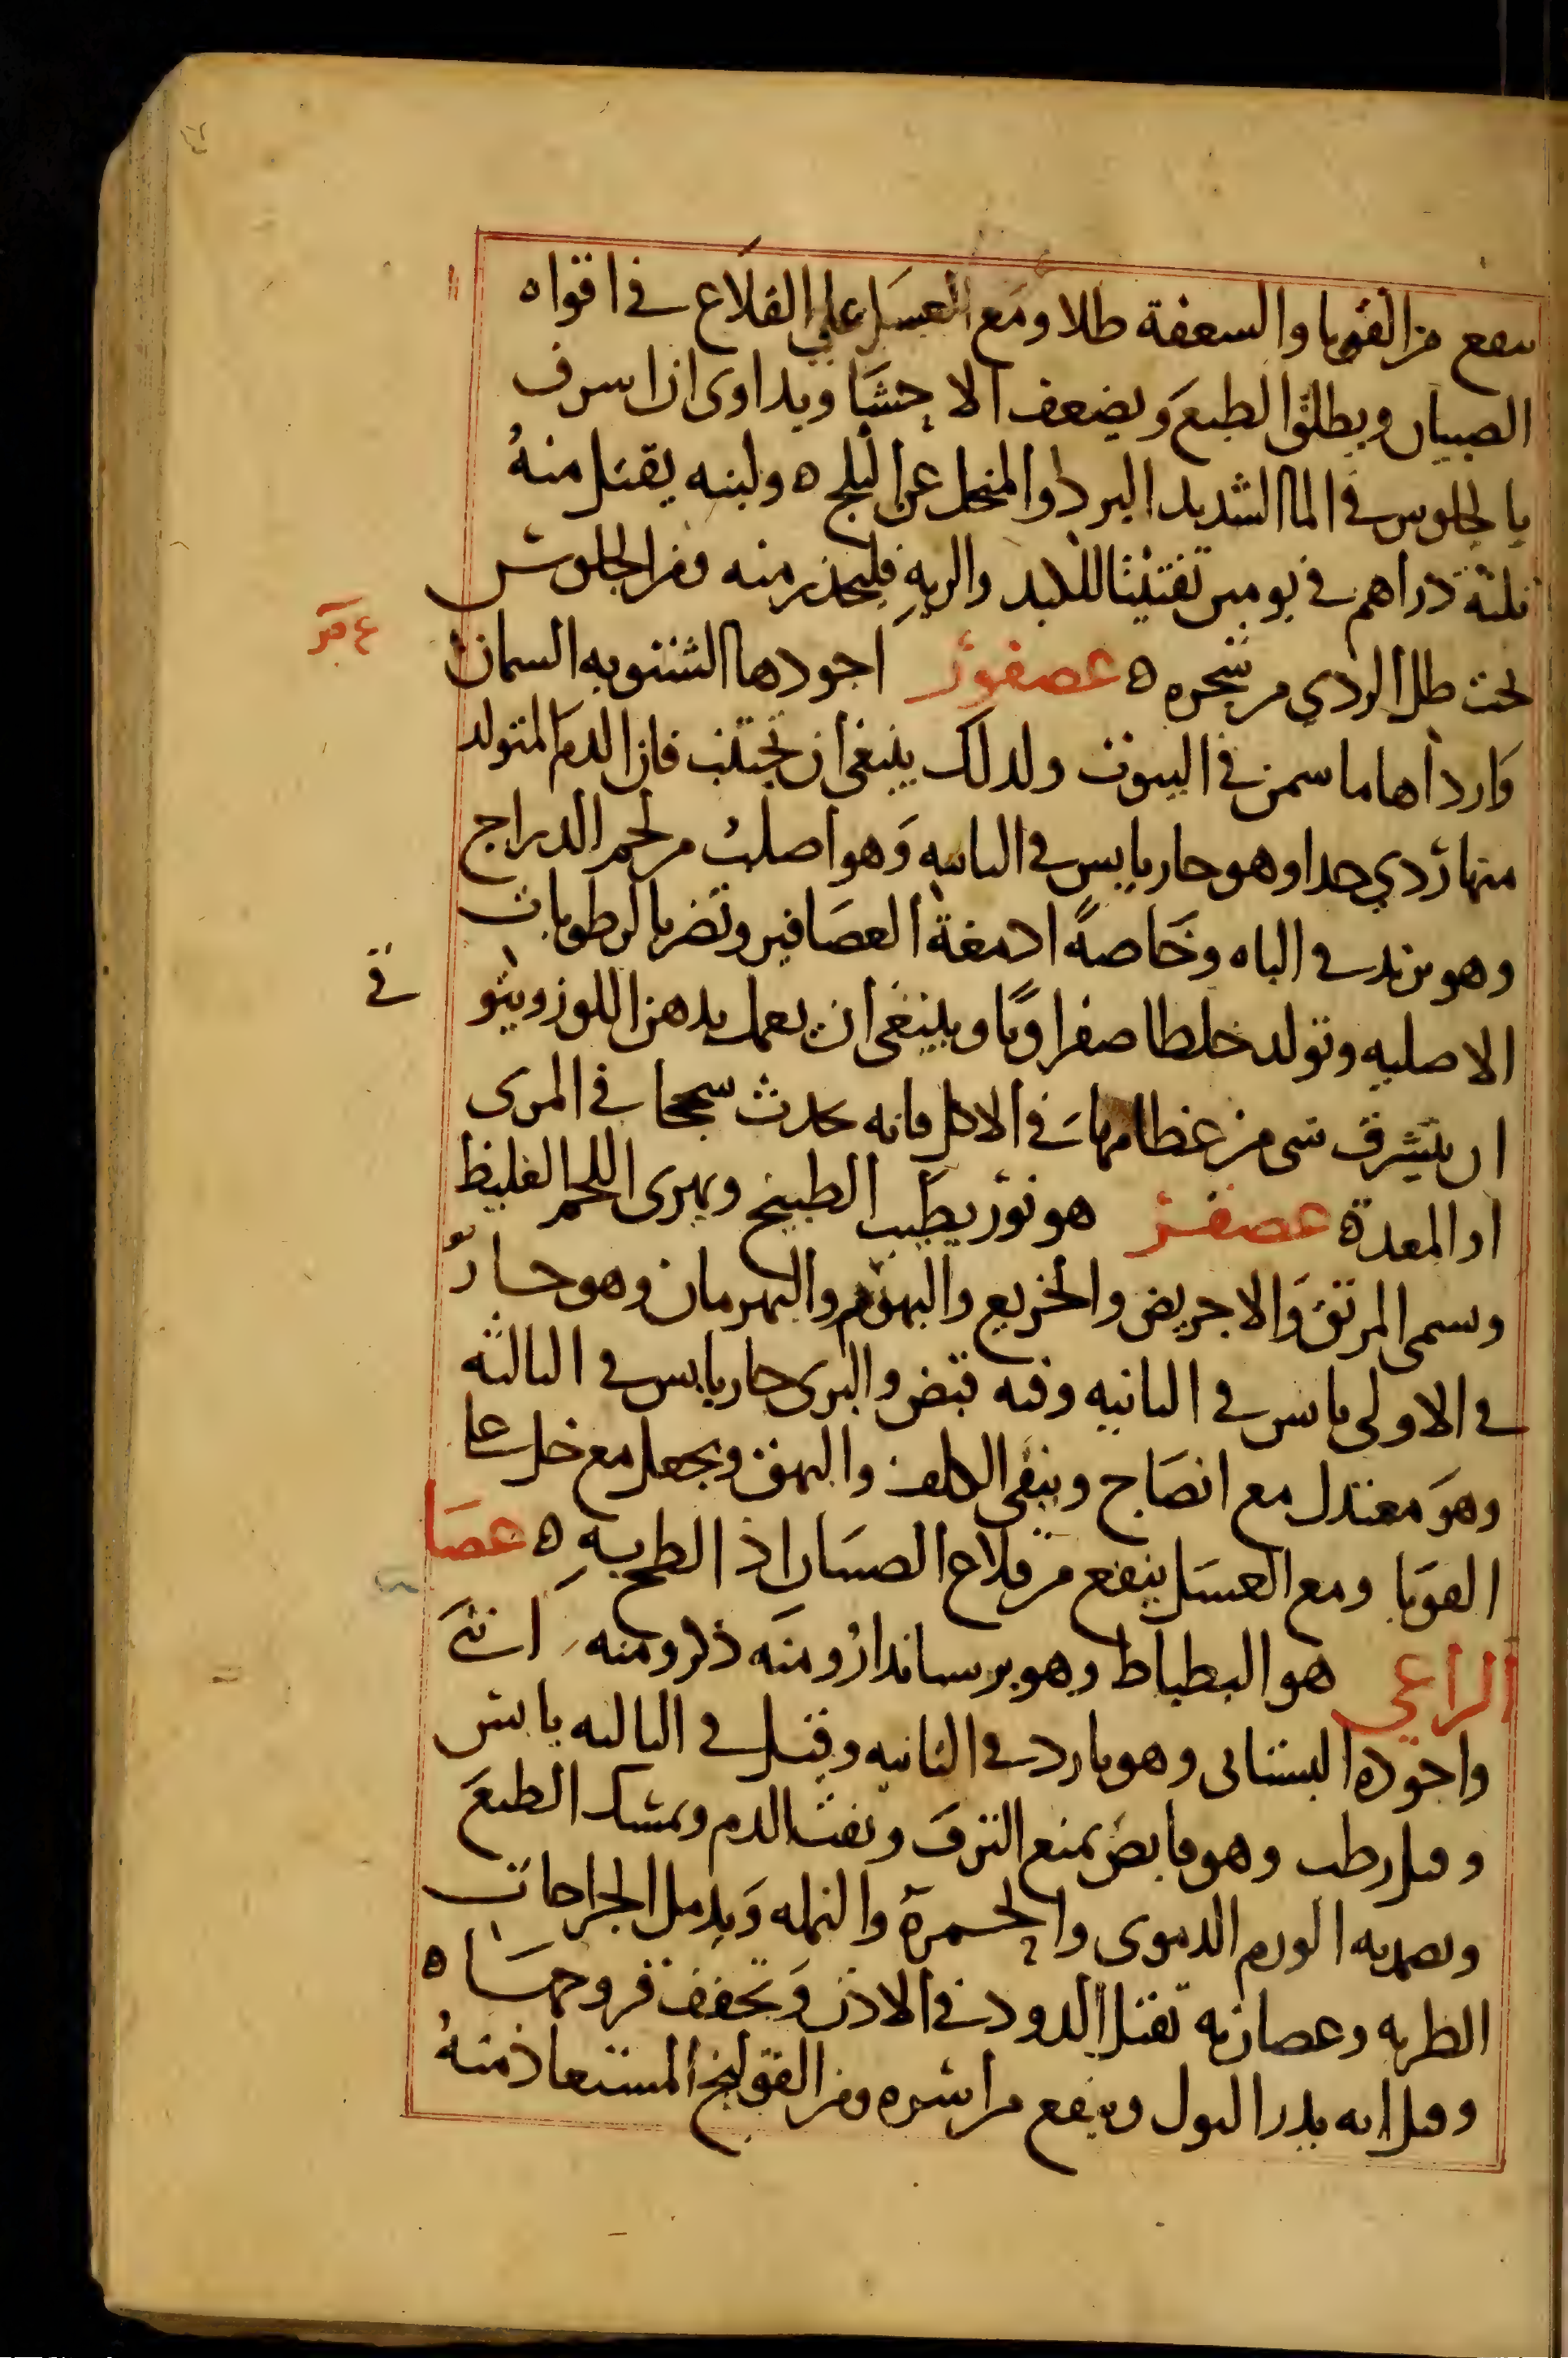 ينفع من القوبا والسعفة طلا ومع العسل على القلاع في افواه
الصبيان ويطلق الطبع ويضعف الاحشا ويداوى ان اسرف
بالجلوس في الما الشديد البرد والمنحل عن الثلج ه ولبنه يقتل منه
ثلثة دراهم في يومين تفتيتا للكبد والريه فليحذر منه ومن الجلوس
تحت ظل الردي من شجره ه عصفور اجودها الشتويه السمان
وارداها ما سمن في البيوت ولذلك ينبغي ان تجتنب فان الدم المتولد
منها ردي جدا وهو حار يابس في الثانيه وهو اصلب من لحم الدراج
وهو يزيد في الباه وخاصة ادمغة العصافير وتضر بالرطوبات
الاصليه وتولد خلطا صفراويا وينبغي ان يعمل بدهن اللوز ويتوقى
ان يتشرف شي من عظامها في الاكل فانه يحدث سحجا في المرى
او المعدة ه عصفر هو نور يطيب الطبيخ ويهرى اللحم الغليظ
وسمى المرتق والاجريض والخريع والبهرم والبهرمان وهو حار
في الاولى يابس في الثانيه وفيه قبض والبرى حار يابس في الثالثه
وهو معتدل مع انضاج وينقي الكلف والبهق ويجعل مع خل على
القوبا ومع العسل ينفع من قلاع الصبيان اذا لطخ به ه عصا
الراعي هو البطباط وهو برسياندار ومنه ذكر ومنه انثى
واجوده البستاني وهو بارد في الثانيه وقيل في الثالثه يابس
وقيل رطب وهو قابض يمنع النزف ونفث الدم ويمسك الطبع
ويضمد به الورم الدموى والحمرة والنمله ويدمل الجراحات
الطريه وعصارته تقتل الدود في الاذن وتجفف قروحها ه
وقيل انه يدر البول وينفع من اشره ومن القولنج المستعاذ منه